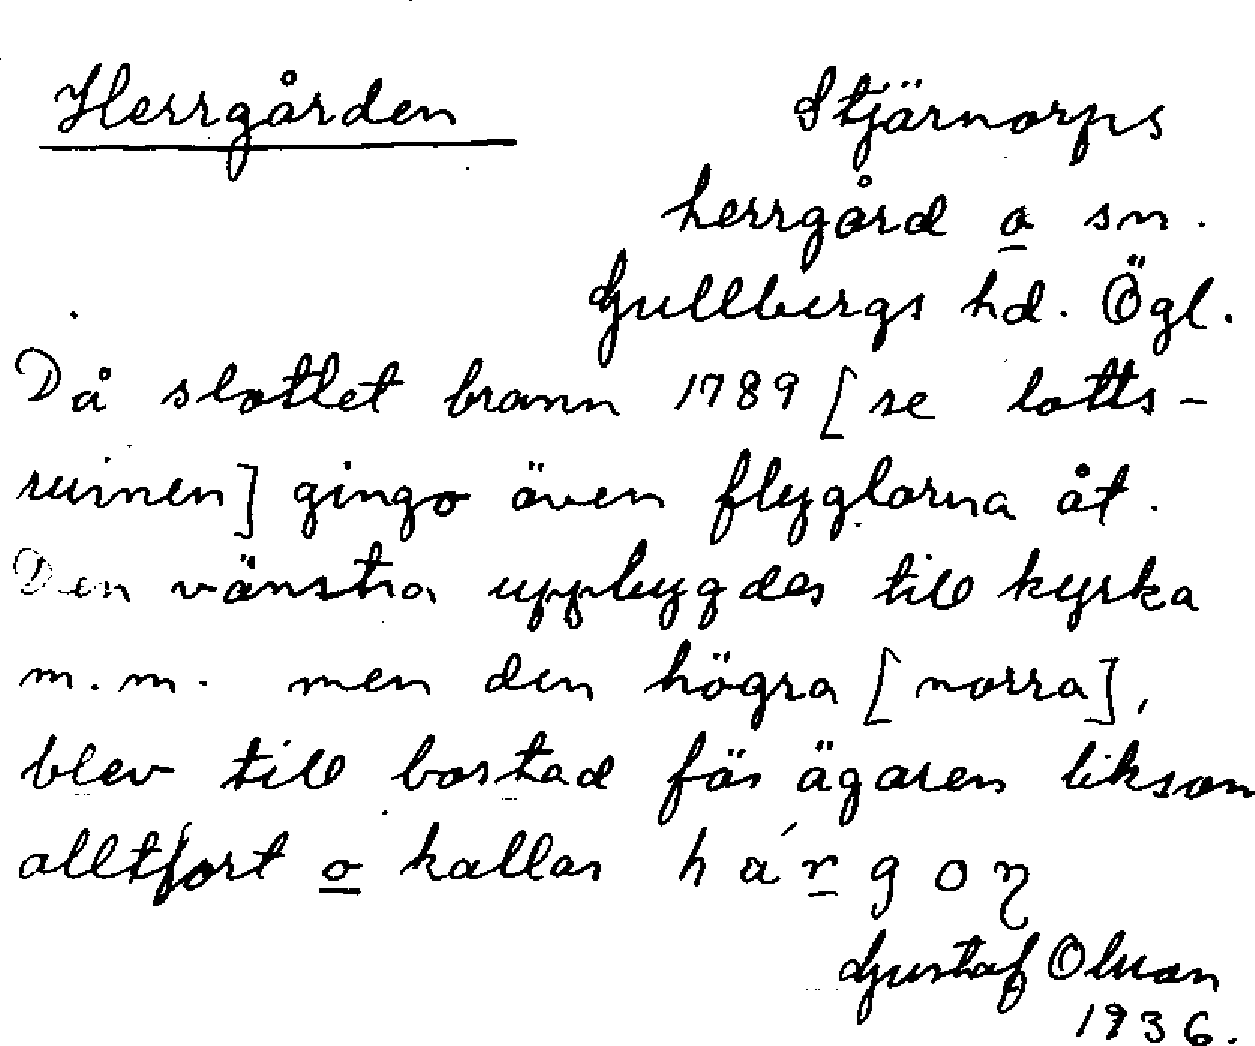 Herrgården Stjärnorps
herrgård o sn.
Gullbergs hd. Ögl.
Då slottet brann 1789 [se lotts-
ruinen] gingo även flyglarna åt.
Den vänstra uppbygdes till kyrka
m.m. men den högra [norra],
blev till bostad för ägaren liksom
alltfort o kallas
Gustaf Olsson
1936.